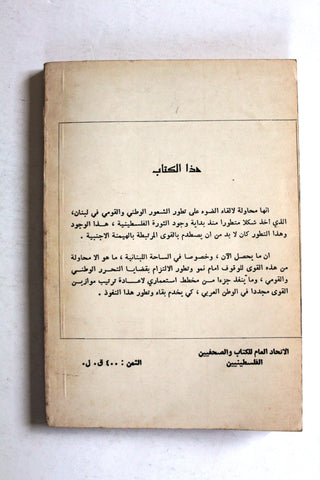 هذا الكتاب
انها محاولة لالقاء الضوء على تطور الشعور الوطني والقومي في لبنان،
الذي اخذ شكلا متطورا منذ بداية وجود الثورة الفلسطينية ، هذا الوجود
وهذا التطور كان لا بد من ان يصطدم بالقوى المرتبطة بالهيمنة الاجنبية .
ان ما يحصل الآن ، وخصوصا في الساحة اللبنانية ، ما هو الا محاولة
من هذه القوى للوقوف امام نمو وتطور الالتزام بقضايا التحرر الوطني
والقومي ، وما ينفذ جزءا من مخطط استعماري لاعادة ترتيب موازين
القوى مجددا في الوطن العربي ، كي يخدم بقاء وتطور هذا النفوذ .
الاتحاد العام للكتاب والصحفيين
الفلسطينيين
الثمن : ٤٠٠ ق٠ ل٠